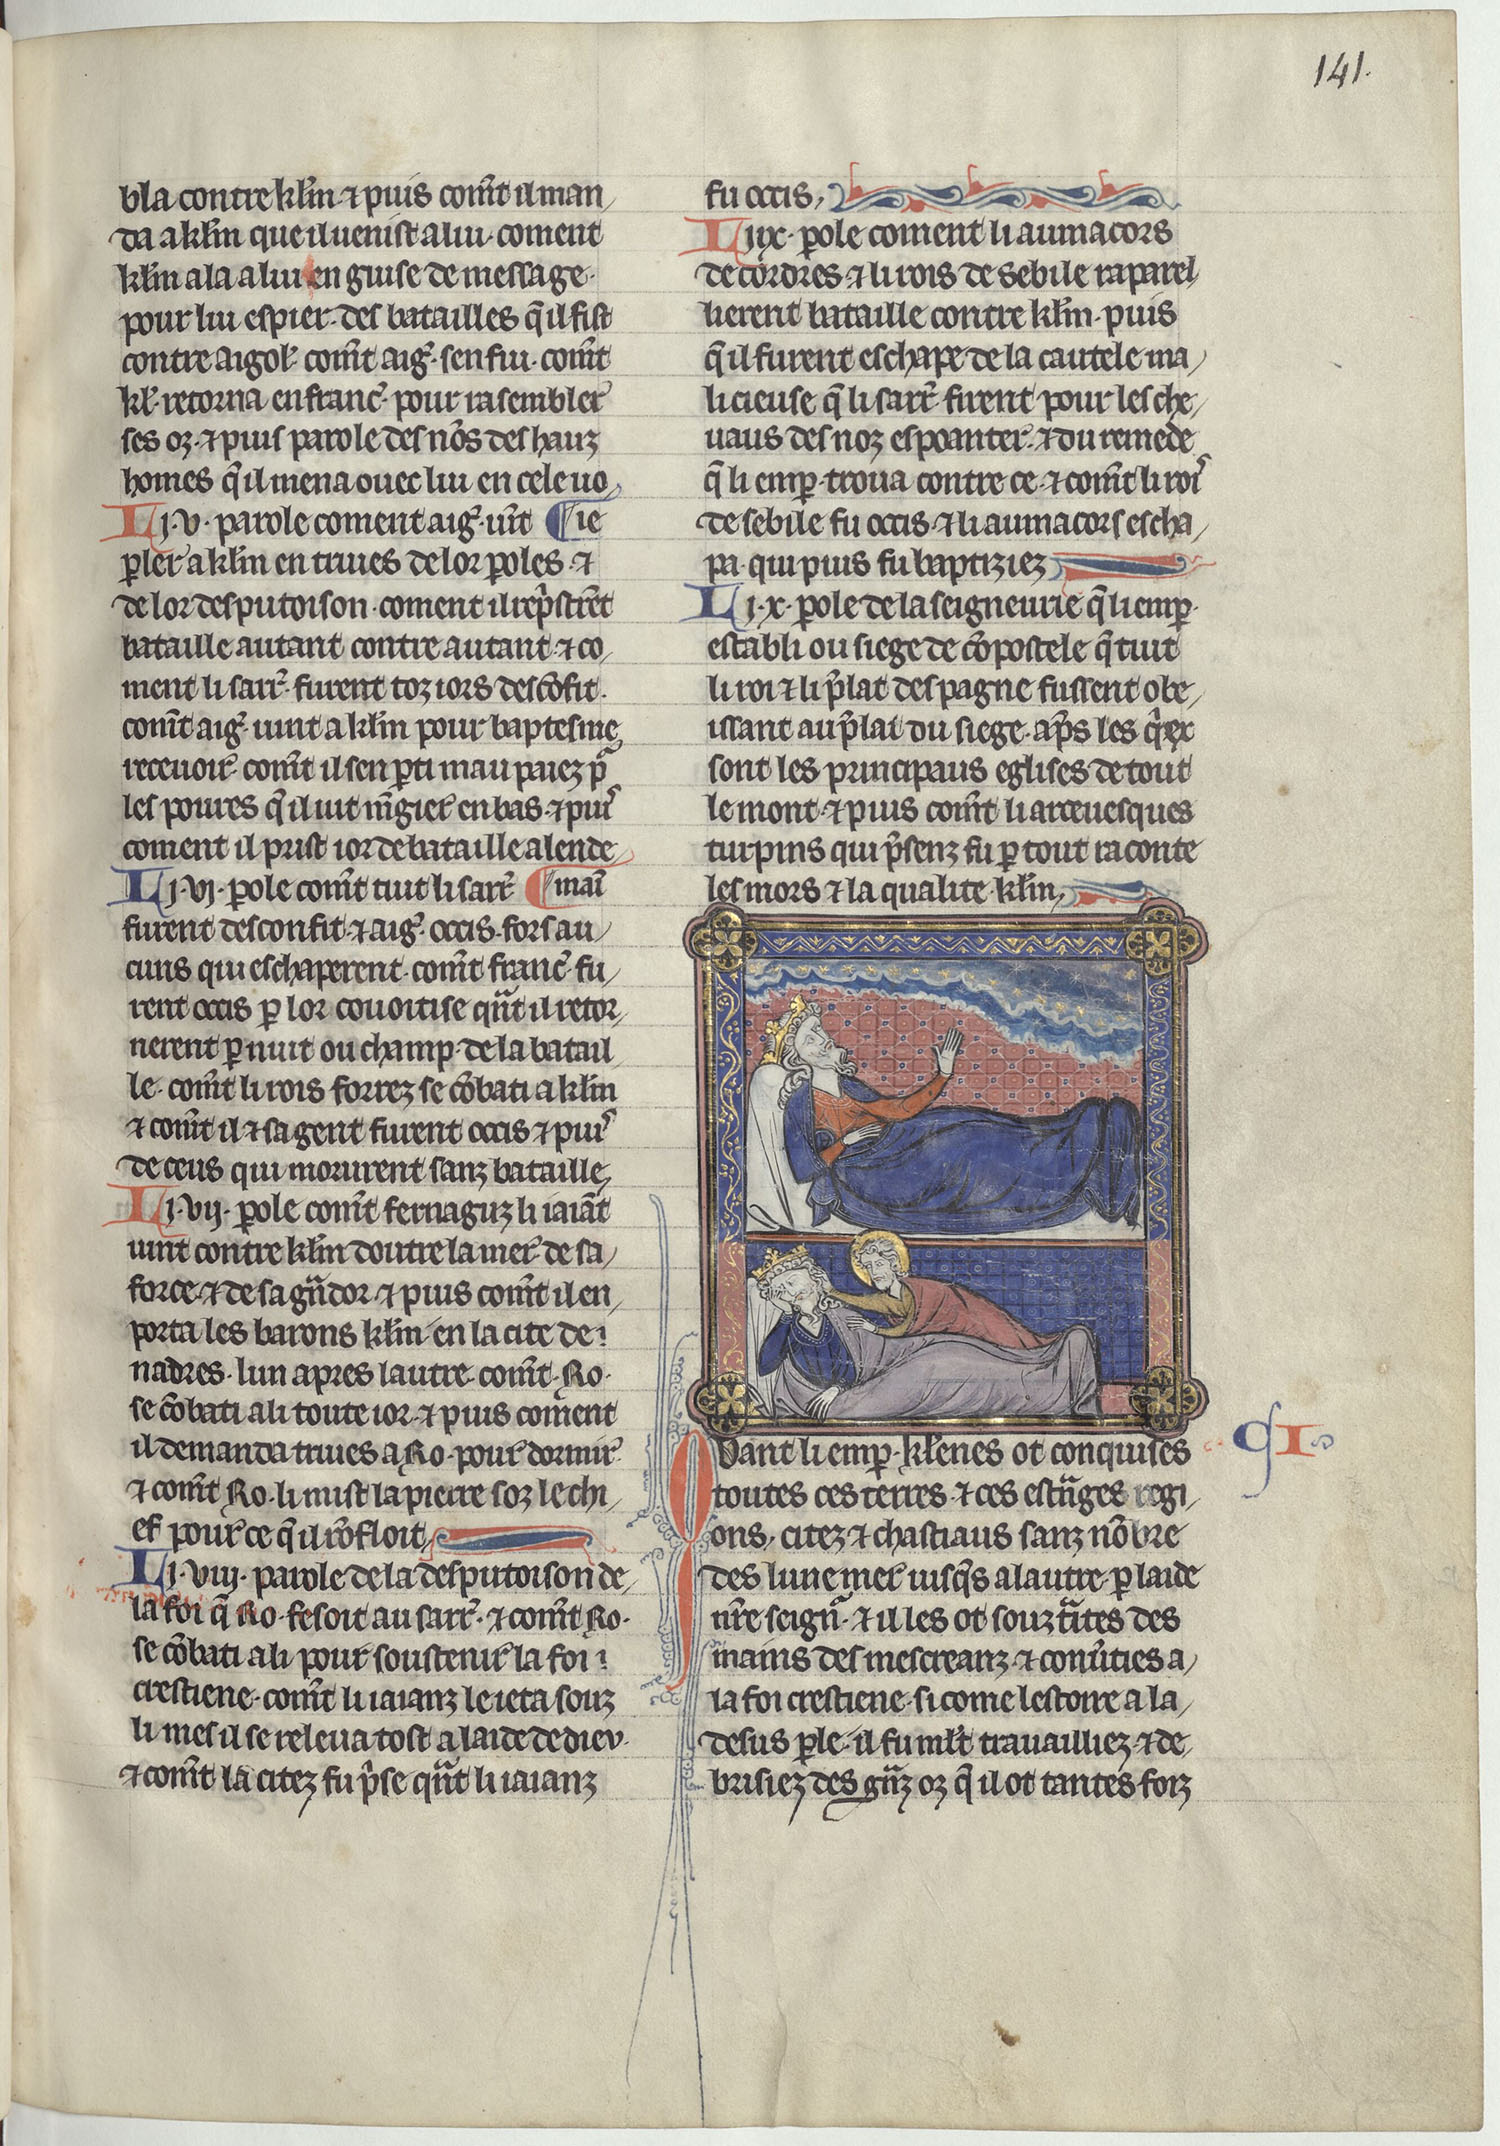 141.
bla contre kl̃m ⁊ puis com̃t il man
da a kl̃m que il uenist a lui. coment
kl̃m ala a lui en guise de message.
pour lui espier. des batailles q̃ il fist
contre aigol. com̃t aig. sen fui. com̃t
kl. retorna en franc̃. pour rasembler
ses oz. ⁊ puis parole des nõs des hauz
homes q̃ il mena ouec lui en cele uo
Li .v. parole coment aig. uĩt ¶ ie
ꝑler a kl̃m en triues de lor ꝑoles. ⁊
de lor desputoison. coment il rep̃strẽt
bataille autant contre autant. ⁊ co
ment li sarr̃. furent toz iors descõfit.
com̃t aig. uint a kl̃m pour baptesme
receuoir. com̃t il sen ꝑti mau paiez p̃
les poures q̃ il uit m̃gier en bas. ⁊ puis
coment il prist ior de bataille a lende
Li .vi. ꝑole com̃t tuit li sarr̃ ¶ mai
furent desconfit. ⁊ aig. occis. fors au
cuns qui eschaperent. com̃t franc̃. fu
rent occis ꝑ lor couoitise qñt il retor
nerent ꝑ nuit ou champ. de la batail
le. com̃t li rois forrez se cõbati a kl̃m
⁊ com̃t il ⁊ sa gent furent occis ⁊ puis
de ceus qui morurent sanz bataille
Li .vii. ꝑole com̃t fernaguz li iaiãt
uint contre kl̃m doutre la mer. de sa
force. ⁊ de sa gñdor. ⁊ puis com̃t il en
porta les barons kl̃m en la cite de
nadres. lun apres lautre. com̃t Ro.
se cõbati a li toute ior. ⁊ puis coment
il demanda triues a Ro. pour dormir.
⁊ com̃t Ro. li mist la pierre soz le chi
ef pour ce q̃ il rõfloit
Li .viii. parole de la desputoison de
la foi q̃ Ro. fesoit au sarr̃. ⁊ com̃t Ro.
se cõbati a li pour soustenir la foi
crestiene. com̃t li iaianz le ieta souz
li mes il se releua tost a laide de dieu.
⁊ com̃t la citez fu p̃se qñt li iaianz
fu occis.
Li .ix. ꝑole coment li aumacors
de cordres ⁊ li rois de sebile raparel
lierent bataille contre kl̃m. puis
q̃ il furent eschape de la cautele ma
licieuse q̃ li sarr̃. firent pour les che
uaus des noz espoanter. ⁊ du remede
q̃ li emp̃. troua contre ce. ⁊ com̃t li rois
de sebile fu occis. ⁊ li aumacors escha
pa. qui puis fu baptiziez
Li .x. ꝑole de la seigneurie q̃ li emp̃.
establi ou siege de cõpostele q̃ tuit
li roi ⁊ li p̃lat despagne fussent obe
issant au p̃lat du siege. ap̃s les q̃ex
sont les principaus eglises de tout
le mont. ⁊ puis com̃t li arceuesques
turpins qui p̃senz fu ꝑ tout raconte
les mors ⁊ la qualite. kl̃m
¶ I
Quant li emp̃. kl̃enes ot conquises
toutes ces terres. ⁊ ces est̃nges regi
ons, citez ⁊ chastiaus sanz nõbre
des lune mer iusq̃s a lautre. ꝑ laide
nr̃e seign̄. ⁊ il les ot souzt̃ites des
mains des mescreanz. ⁊ conũties a
la foi crestiene. si come lestoire a la
desus ꝑle. il fu ml̃t trauailliez. ⁊ de
brisiez des gñz oz q̃ il ot tantes foiz